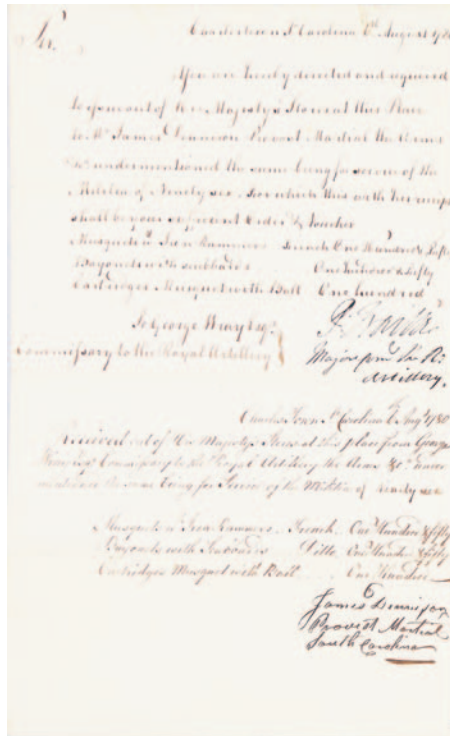 Sir.
Charlestown So Carolina 6th August 1780
You are hereby directed and required
to issue out of His Majesty's Stores at this Place
to Mr James Dennison Provost Martial the Arms
&c undermentioned the same being for service of the
Militia of Ninety six, for which this with his receipt
shall be your sufficient Order & Voucher
Musquets wt Iron Rammers french One Hundred & fifty
Bayonets with scabbards One Hundred & fifty
Cartridges Musquet with Ball One hundred
To George Wray Esqr
Commissary to the Royal Artillery
Major Rl
Artillery.
Charles Town So Carolina 6th Augt 1780
Received out of His Majestys Stores at this place from George
Wray Esqr Commissary to the Royal Artillery the Arms &c under
mentioned the same being for Service of the Militia of ninety six
Musquets wt Iron Rammers French One Hundred & fifty
Bayonets with Scabbards Ditto One Hundred & fifty
Cartridges Musquet with Ball One Hundred
James Dennison
Provost Martial
South Carolina